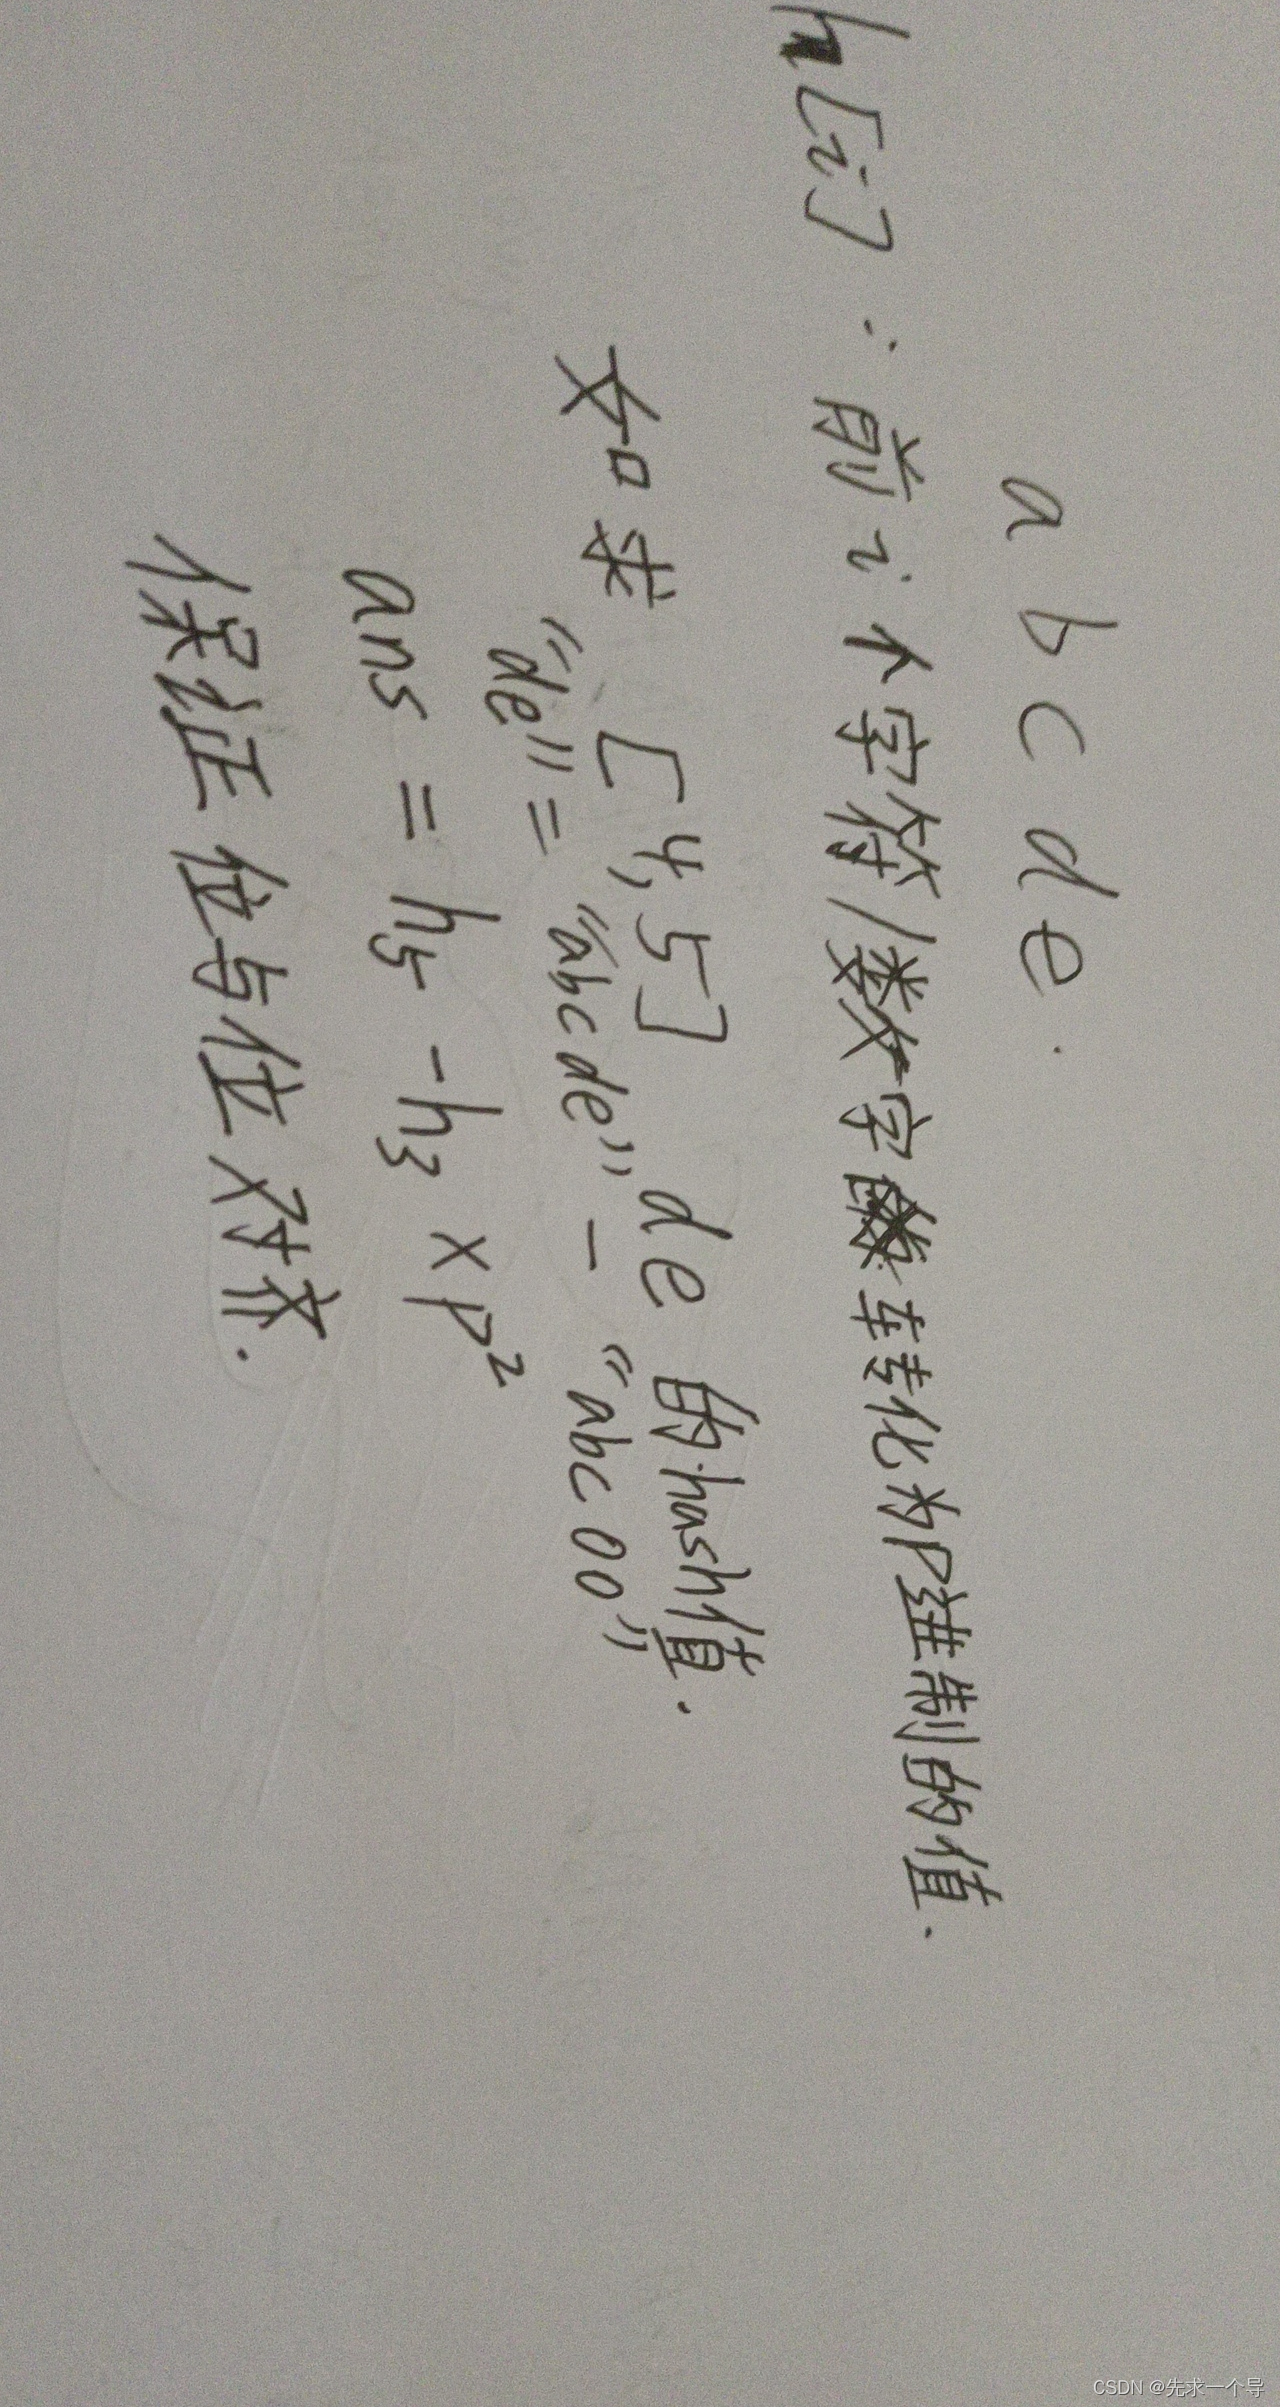 a b c d e .
h[i] : 前 i 个字符/数字转化为P进制的值.
如求 [4,5] de 的hash值.
"de" = "abcde" - "abc00"
ans = h5 - h3 × P²
保证位与位对齐.
CSDN @先求一个导